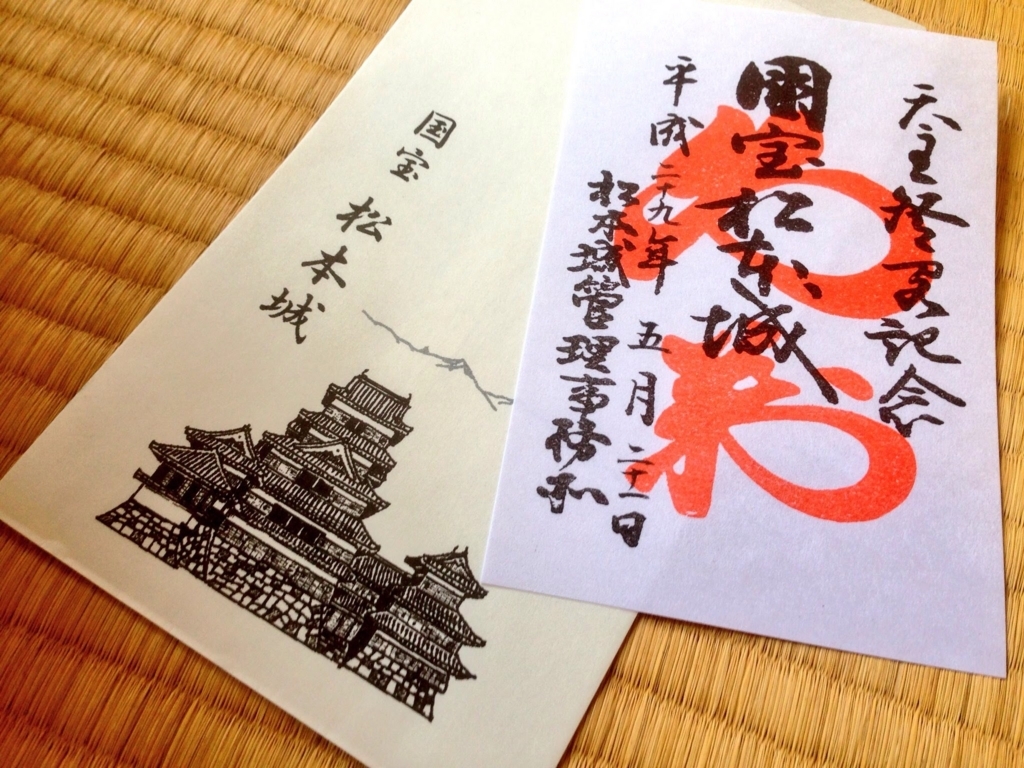 国宝 松本城
天主登閣記念
国宝 松本城
平成二九年 五月二十一日
松本城管理事務所